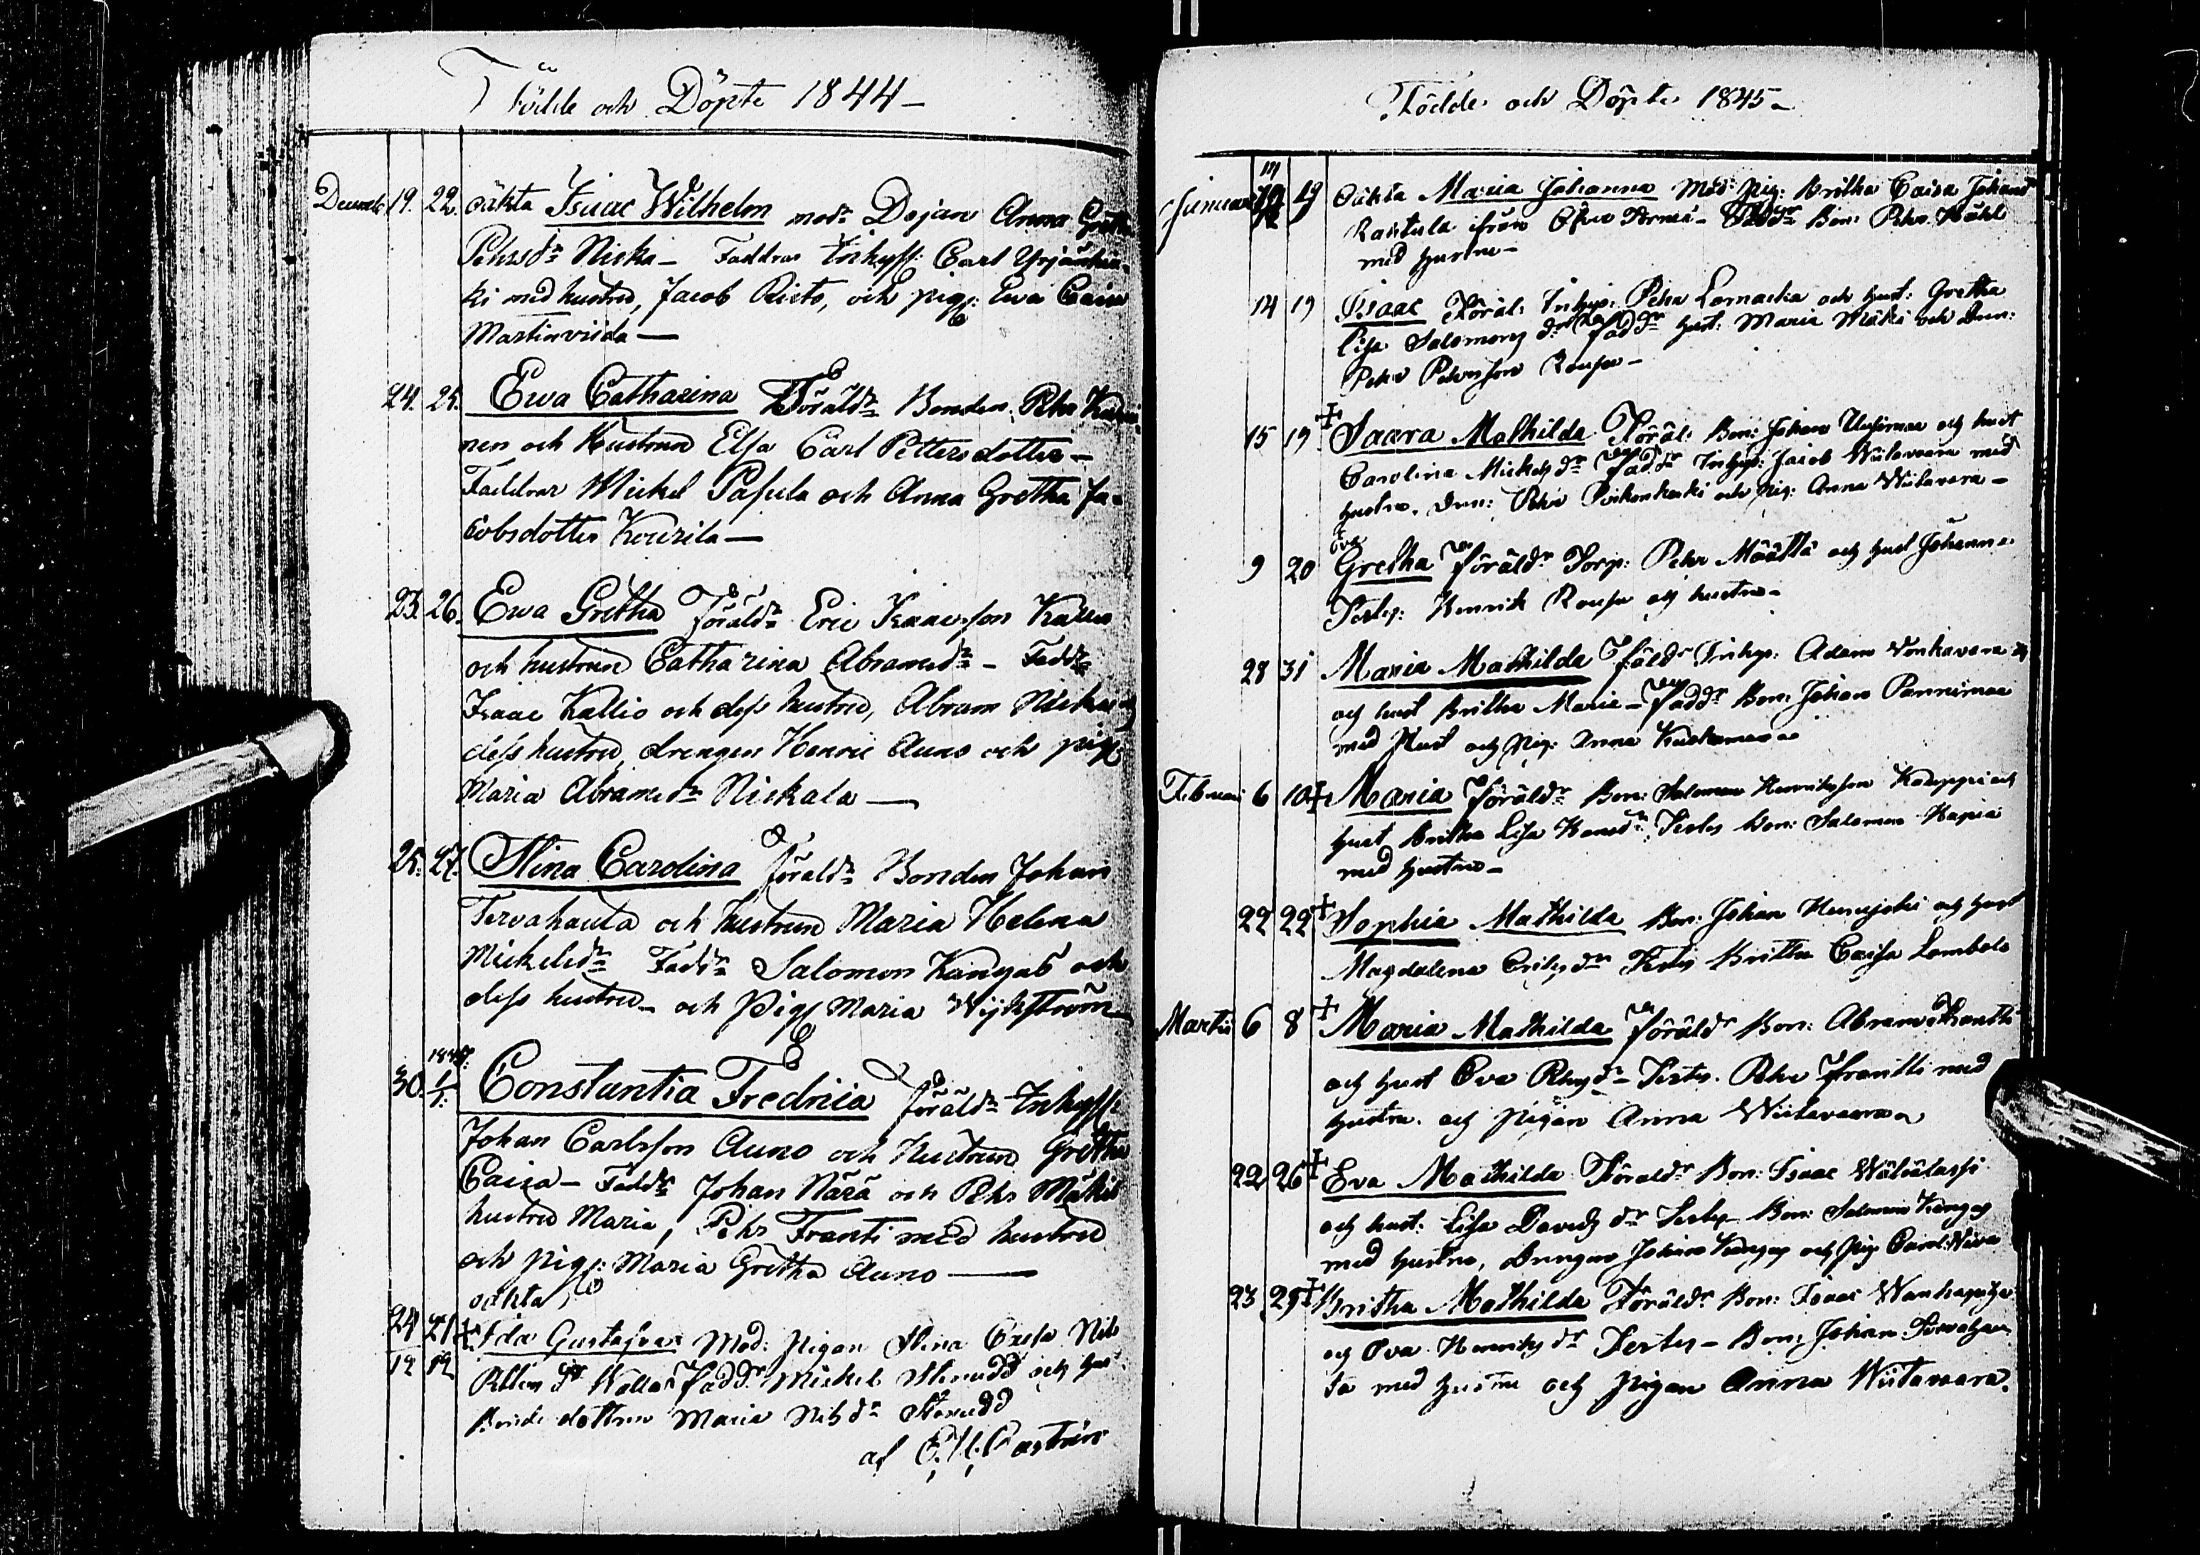 Födde och Döpte 1844 –
Decemb. 19. 22. oäkta Isaac Wilhelm modr Dejan Anna Greta
Pehrsdr Niska – Faddrar Inhyss: Carl Yrjänhei-
ki med hustru, Jacob Risto, och pigs: Ewa Caisa
Martinviida —
24. 25. Ewa Catharina Föräldr Bonden Pehr
nen och Hustrun Elsa Carl Pettersdotter –
Faddrar Mickel Pasula och Anna Gretha Ja-
cobsdotter Kourila —
23. 26. Ewa Gretha Föräldr Eric Isaacsson Kallio
och hustrun Catharina Abramsdr – Faddr
Isaac Kallio och dess hustru, Abram Niska och
dess hustru, drengen Henric Auno och pigs
Maria Abramsdr Niskala —
25. 27. Stina Carolina Föräldr Bonden Johan
Tervahauta och hustrun Maria Helena
Mickelsdr Faddr Salomon Kangas och
dess hustru – och Pigs Maria Wijkström
1845.
30. 1/1. Constantia Fredrica Föräldr Inhyss
Johan Carlsson Auno och Hustrun Gretha
Caisa – Faddr Johan Närä och Pehr
hustru Maria, Pehr Franti med hustru
och pigs: Maria Gretha Auno —
oäkta,
24/12 27/12 + Ida Gustafva Mod: Pigan Stina Caisa Nils
Petters dr Faddr Mickel och hus
Bonde dottren Maria Nils dr
af E. U. Castrén
Födde och Döpte 1845 –
Januari 19 Oäkta Maria Johanna Mod: Pig: Britha Caisa Johansd
Rautula ifrån Öfver Torneå – Faddr Bon: Pehr
med hustru –
14 19 Isaac Föräl: Inhys: Pehr Lomacka och hust: Gretha
Lisa Salomons dr Faddr hust: Maria Mäki och Dren:
Pehr Pehrsson Roufa –
15 19 + Saara Mathilda Föräl: Bon: Johan Uusimaa och hust
Carolina Mickels dr Faddr Inhys: Jacob Wiitavaara med
hustru. Dren: Pehr och pig: Anna Wiitavara –
Eva
9 20 Gretha Föräldr Torp: Pehr Määttä och hust Johanna
Testes: Henrik Roufa och hustru –
28 31 Maria Mathilda Föräldr Inhys: Adam Vonkavara
och hust Britha Maria – Faddr Bon: Johan Pannimaa
med Hust och Pig: Anna
Februari 6 10 + Maria Föräldr Bon: Salomon Henriksson och
hust Britha Lisa Hansdr. Testes Bon: Salomon
med hustru –
22 22 + Sophia Mathilda Bon: Johan och hust
Magdalena Erics dr Testes Britha Caisa Lombolo
Martii 6 8 + Maria Mathilda Föräldr Bon: Abram Frantti
och hust Eva Testes. Pehr Frantti med
hustru. och pigan Anna Wiitavaara
22 26 + Eva Mathilda Föräldr Bon: Isaac
och hust: Lisa Davids dr Testes – Bon: Salomon Kangas
med hustru, Drengen Johan Kangas och Pig Carol:
23 29 + Britha Mathilda Föräldr Bon: Isaac
och Eva Henriks dr Testes – Bon: Johan Tervahau-
ta med hustru och Pigan Anna Wiitavaara.